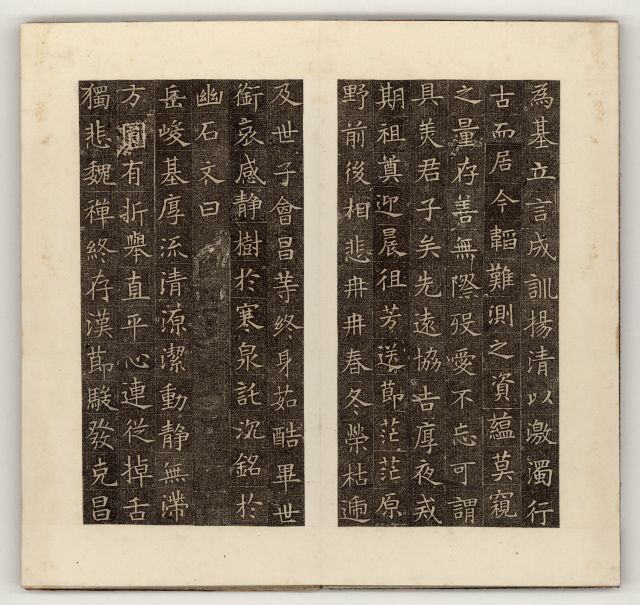 為基立言成訓揚清以激濁行
古而居今韜難測之資蘊莫窺
之量存善無際歿愛不忘可謂
具美君子矣先遠協吉厚夜戒
期祖奠迎晨徂芳送節茫茫原
野前後相悲冉冉春冬榮枯遞
及世子會昌等終身茹酷畢世
銜哀感静樹於寒泉託沉銘於
幽石文曰
岳峻基厚流清源潔動静無滯
方圓有折舉直平心連從掉舌
獨悲魏禪終存漢節駿發克昌